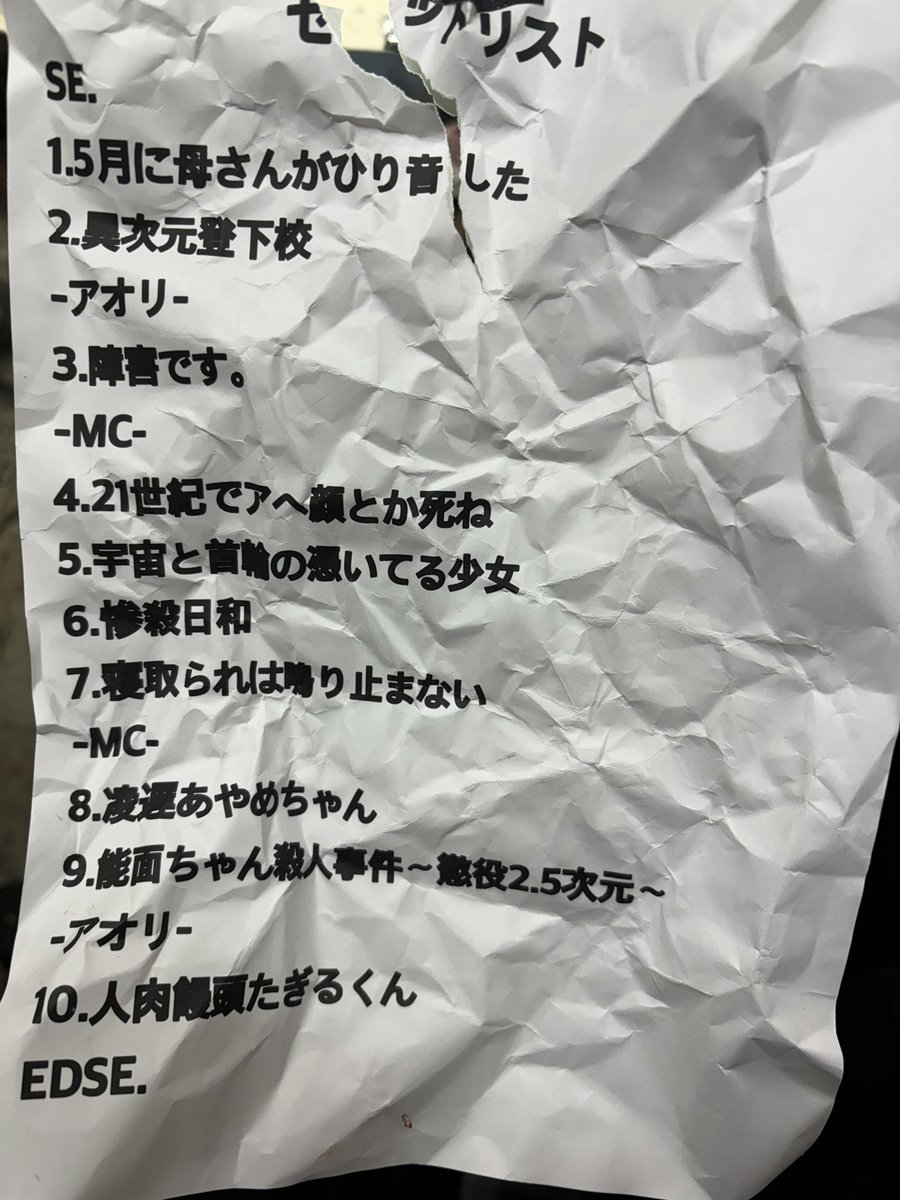 セットリスト
SE.
1.5月に母さんがひり音した
2.異次元登下校
-アオリ-
3.障害です。
-MC-
4.21世紀でアヘ顔とか死ね
5.宇宙と首輪の憑いてる少女
6.惨殺日和
7.寝取られは鳴り止まない
-MC-
8.凌遅あやめちゃん
9.能面ちゃん殺人事件～懲役2.5次元～
-アオリ-
10.人肉饅頭たぎるくん
EDSE.